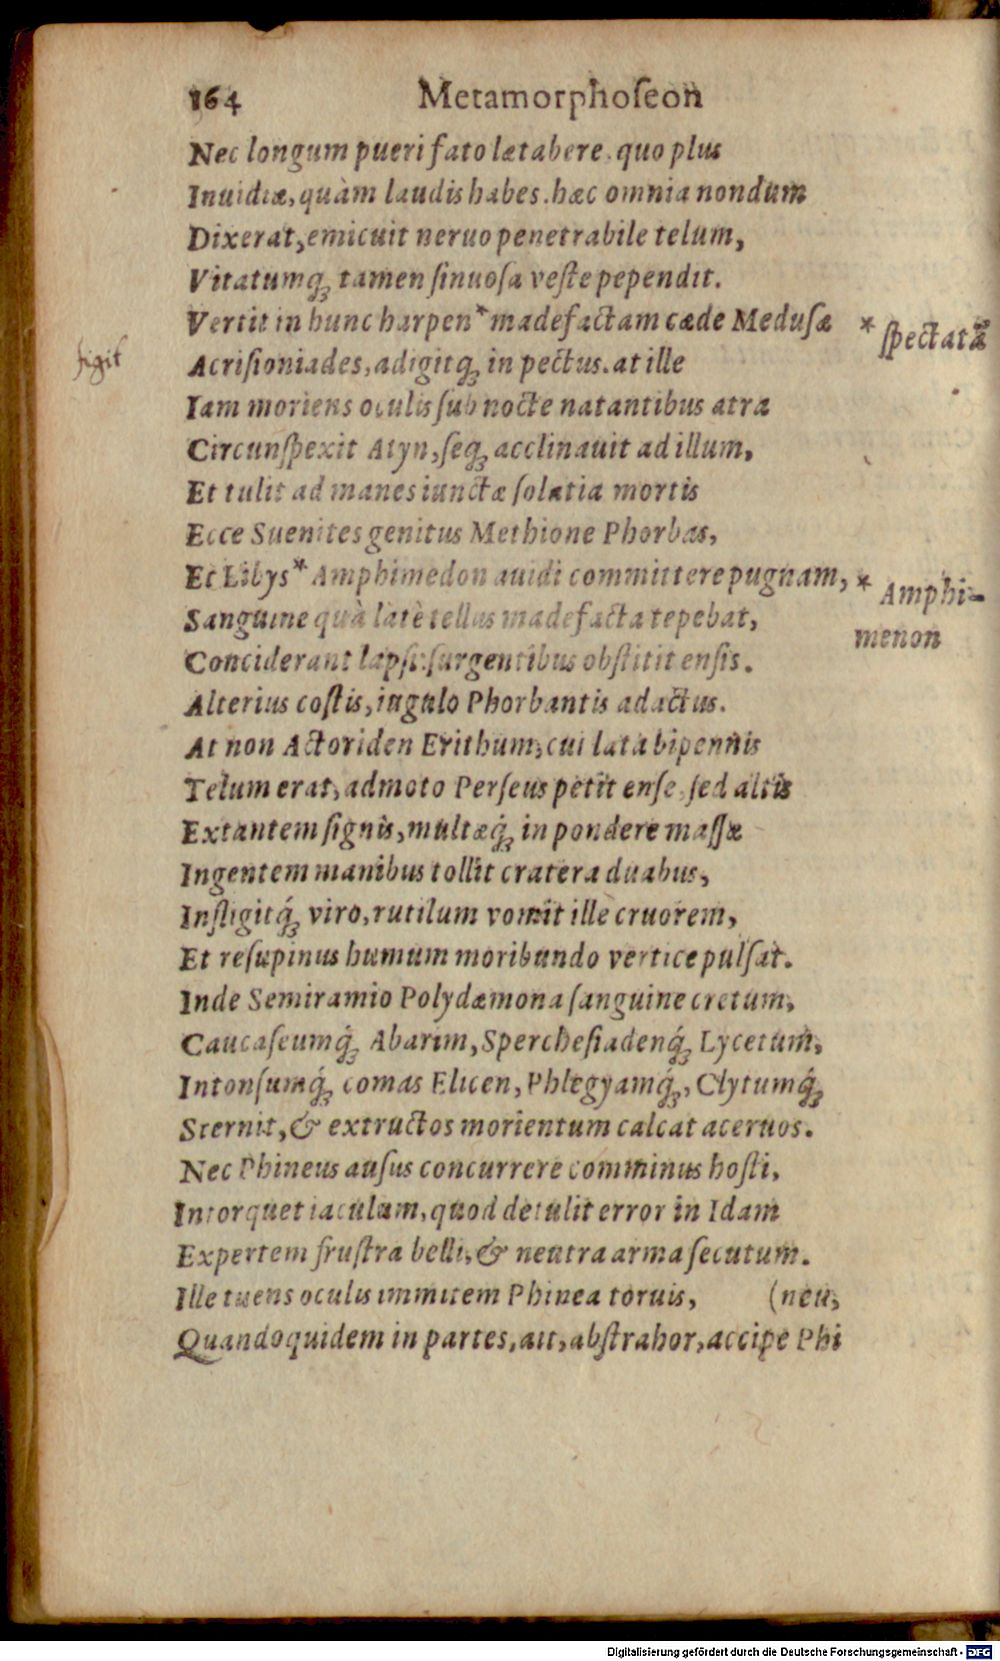 164 Metamorphoſeon
Nec longum pueri fato lætabere, quo plus
Inuidiæ, quàm laudis habes. hæc omnia nondum
Dixerat, emicuit neruo penetrabile telum,
Vitatumq́; tamen ſinuoſa veſte pependit.
Vertit in hunc harpen * madefactam cæde Meduſæ
* ſpectatā
figit
Acriſioniades, adigitq; in pectus. at ille
Iam moriens oculis ſub nocte natantibus atra
Circunſpexit Atyn, ſeq; acclinauit ad illum,
Et tulit ad manes iunctæ ſolatia mortis
Ecce Suenites genitus Methione Phorbas,
Et Libys * Amphimedon auidi committere pugnam,
* Amphi-
menon
Sanguine quà latè tellus madefacta tepebat,
Conciderant lapſi: ſurgentibus obſtitit enſis.
Alterius coſtis, iugulo Phorbantis adactus.
At non Actoriden Erithum, cui lata bipennis
Telum erat, admoto Perſeus petit enſe, ſed altis
Extantem ſignis, multæq́; in pondere maſſæ
Ingentem manibus tollit cratera duabus,
Infligitq́; viro, rutilum vomit ille cruorem,
Et reſupinus humum moribundo vertice pulſat.
Inde Semiramio Polydæmona ſanguine cretum,
Caucaſeumq́; Abarim, Spercheſiadenq́; Lycetum,
Intonſumq́; comas Elicen, Phlegyamq́;, Clytumq́;
Sternit, & extructos morientum calcat aceruos.
Nec Phineus auſus concurrere comminus hoſti,
Intorquet iaculum, quod detulit error in Idam
Expertem fruſtra belli, & neutra arma ſecutum.
Ille tuens oculis immitem Phinea toruis, (neu,
Quandoquidem in partes, ait, abſtrahor, accipe Phi
Digitalisierung gefördert durch die Deutsche Forschungsgemeinschaft - DFG